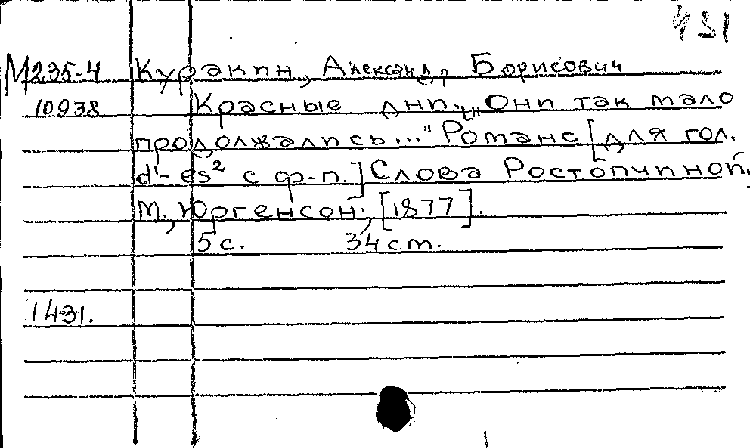 431
М235-4 Куракин, Александр, Борисович
10938 Красные дни. „Они так мало
продолжались..." Романс [для гол.
d'-es² с ф-п.] Слова Ростопчиной.
М., Юргенсон, [1877].
5 с. 34 ст.
1431.